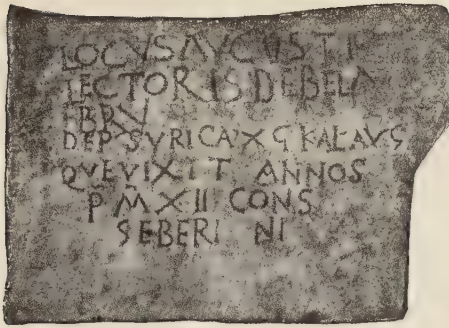 LOCVS AVGVSTI
LECTORIS DE BELA
BRV
DEP SVRICA XϚ KAL AVG
QVE VIXIT ANNOS
P M XII CONS
SEBERINI